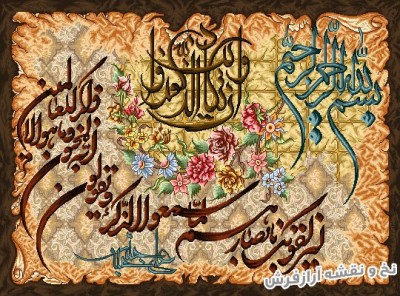 بسم الله الرحمن الرحیم
وان یکاد الذین کفروا
لیزلقونک بابصارهم لما سمعوا الذکر
ویقولون انه لمجنون وما هو الا
ذکر للعالمین
نخ و نقشه آرازفرش